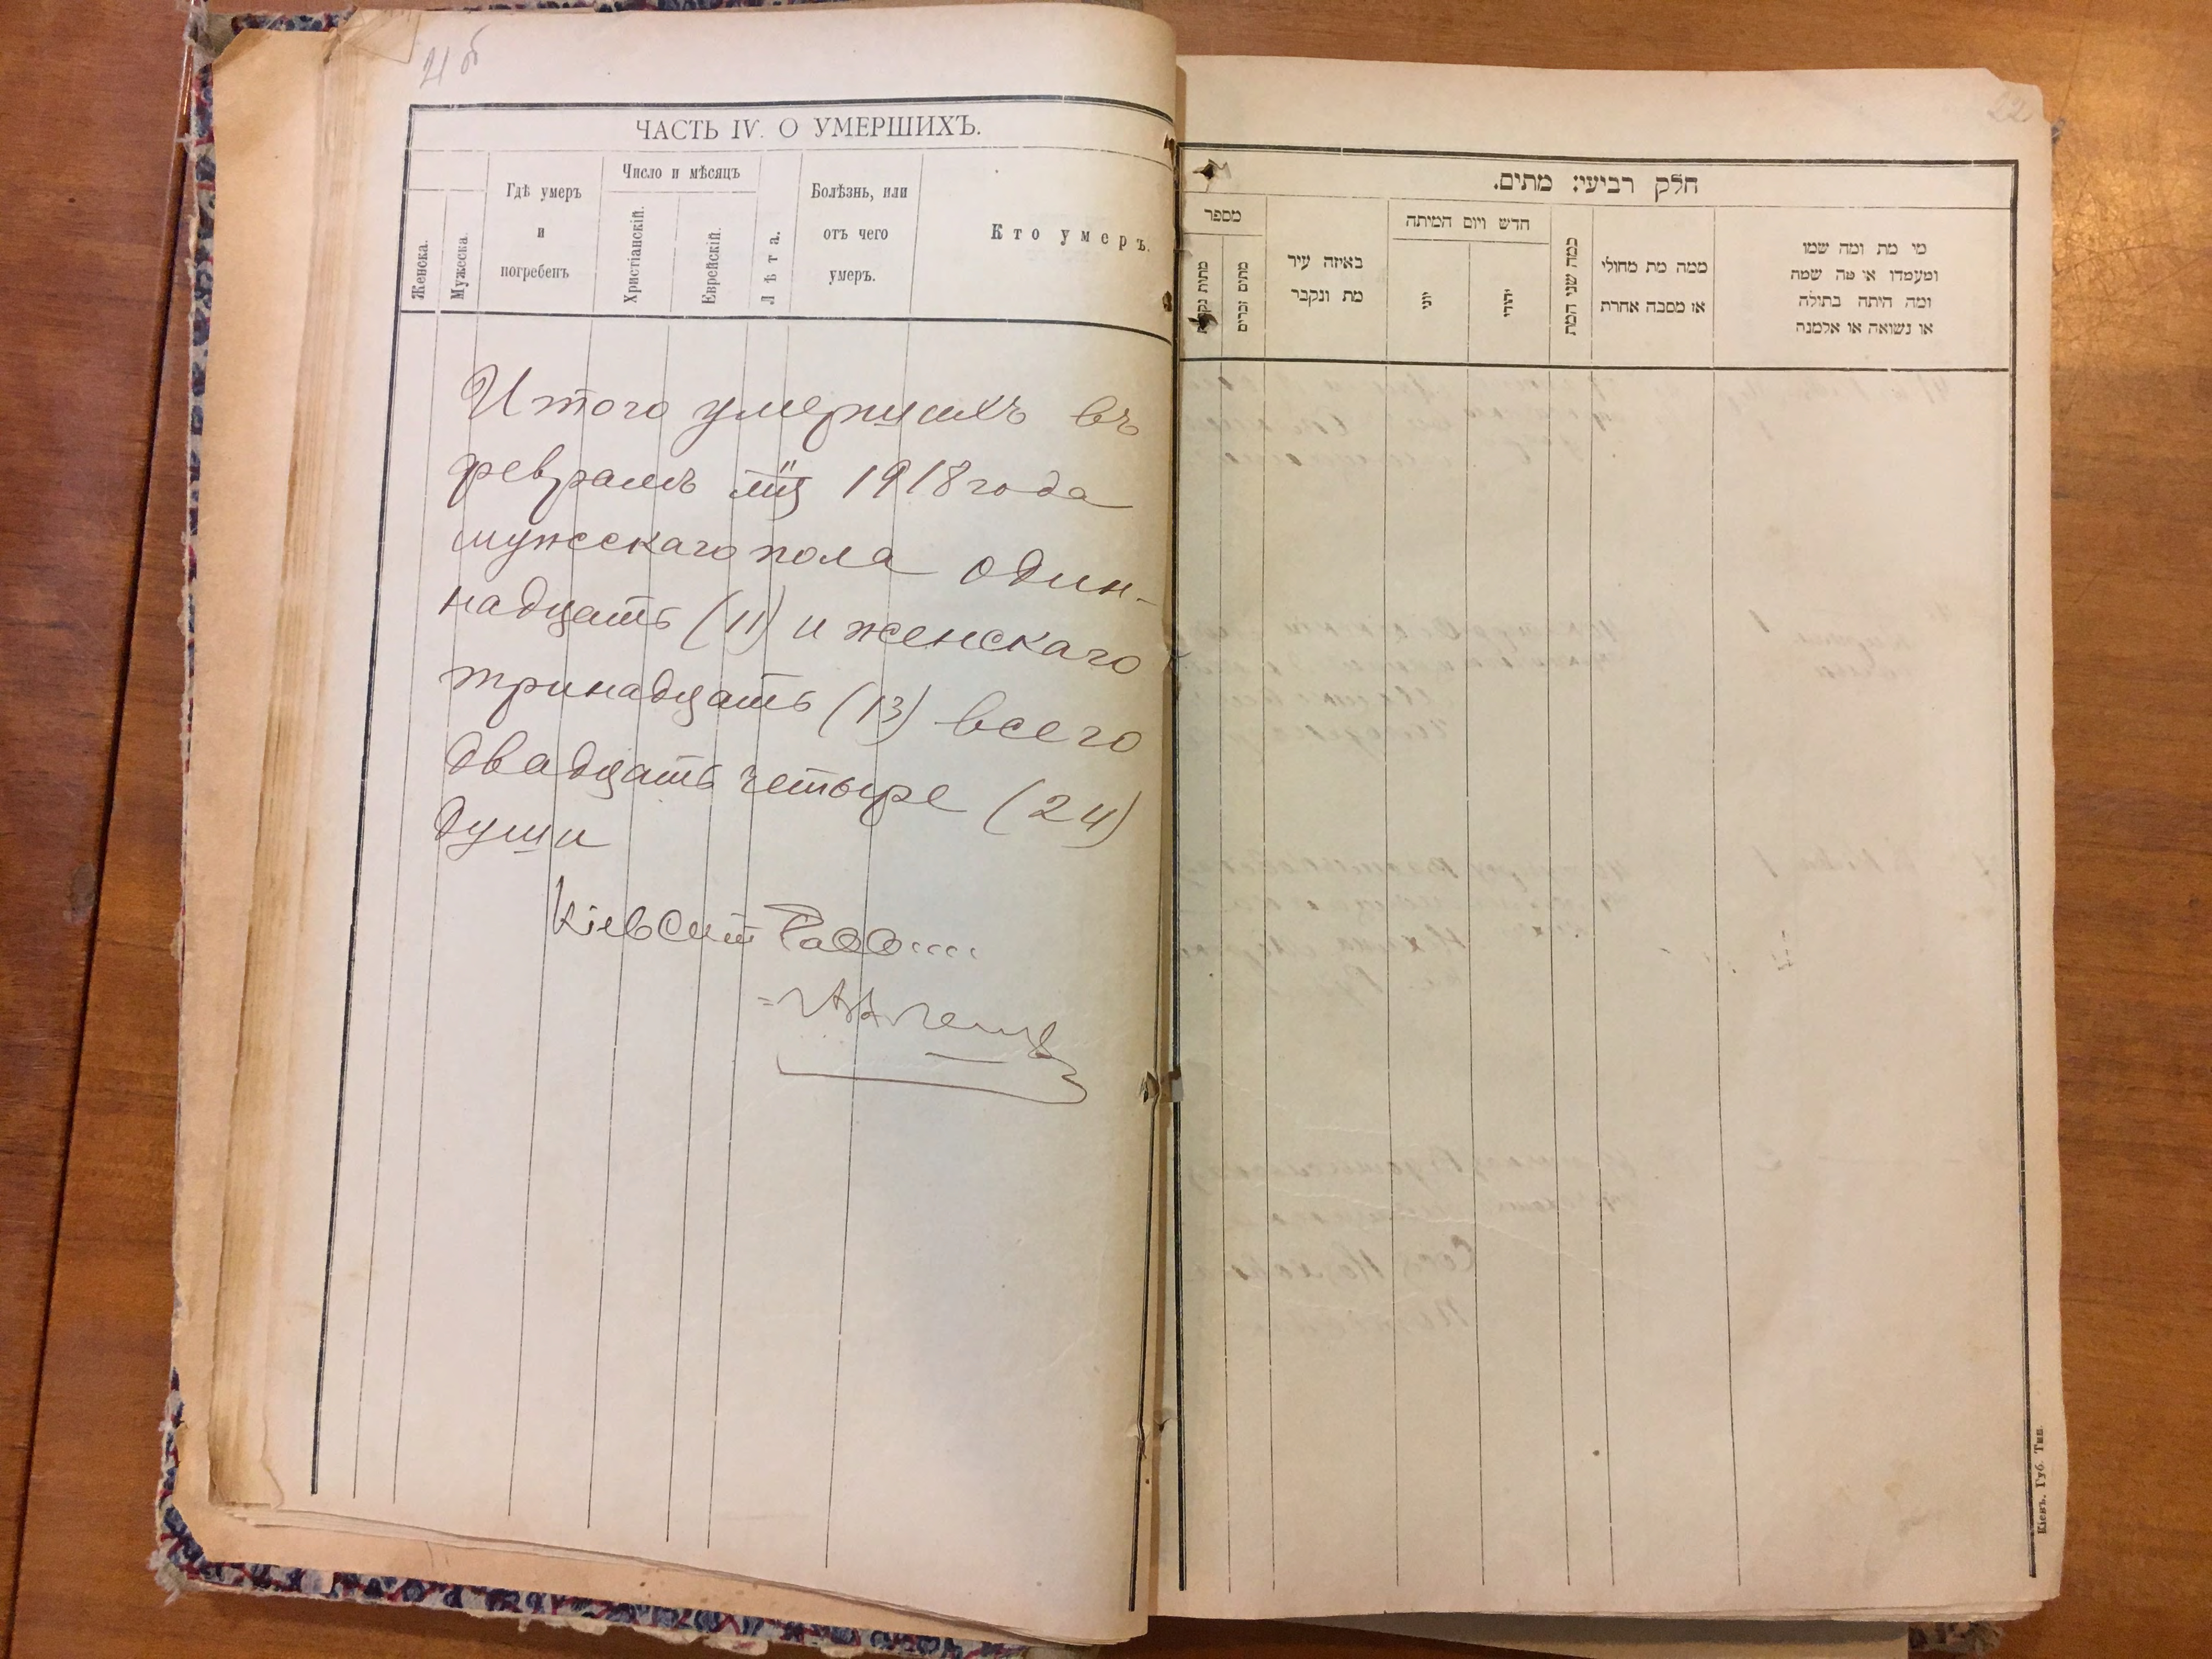 21 об
ЧАСТЬ IV. О УМЕРШИХЪ.
Женска.
Мужеска.
Гдѣ умеръ
и
погребенъ
Число и мѣсяцъ
Христіанскій.
Еврейскій.
Лѣта.
Болѣзнь, или
отъ чего
умеръ.
Кто умеръ.
Итого умершихъ въ
февралѣ мцѣ 1918 года
мужескаго пола один-
надцать (11) и женскаго
тринадцать (13) всего
двадцать четыре (24)
души
Кіевскій
22
חלק רביעי: מתים.
מספר
מתים זכרים
באיזה עיר
מת ונקבר
חדש ויום המיתה
יוני
יהודי
כמה שני המת
ממה מת מחולי
או מסבה אחרת
מי מת ומה שמו
ומעמדו או מה שמה
ומה היתה בתולה
או נשואה או אלמנה
Кіевъ. Губ. Тип.